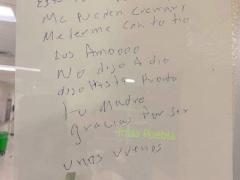 Me Pueden Cremar y
Meterme Con tu tio
Los Amoooo
No digo Adio
digo Hasta Pronto
tu Madre
gracias Por Ser
Puebla
unos vuenos